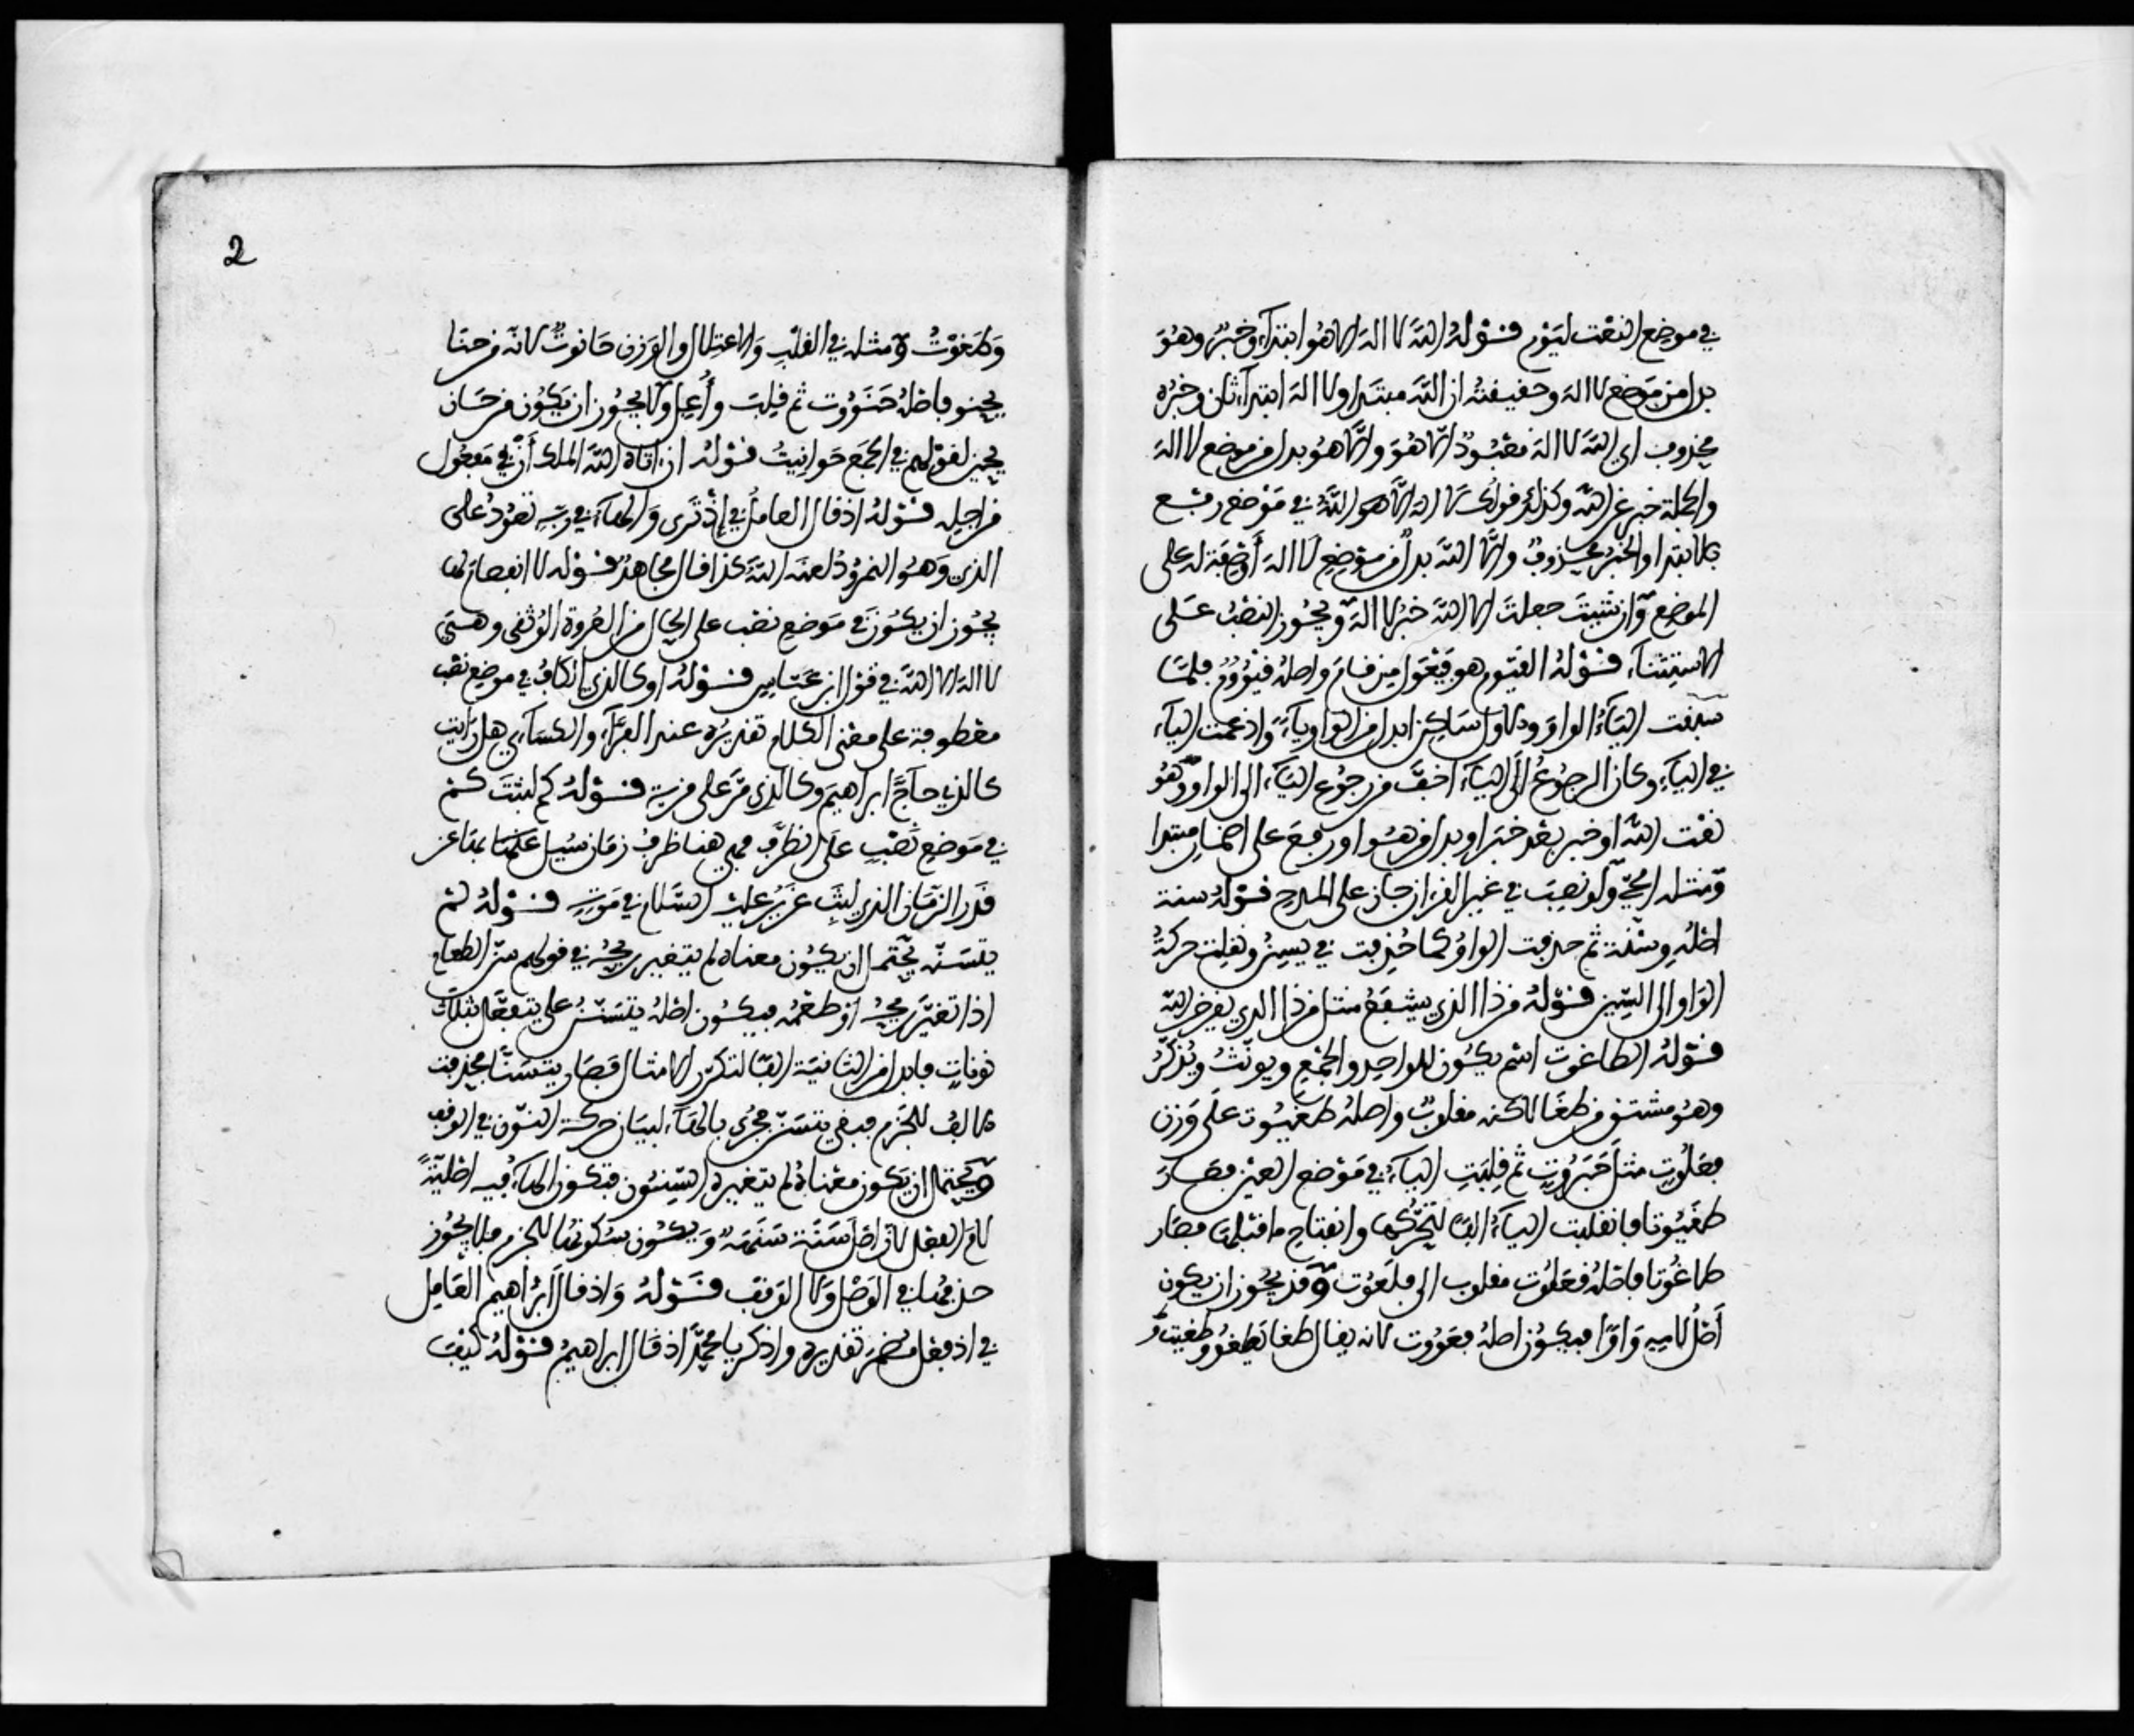 في موضع النعت ليوم قوله الله لا اله الا هو ابتداء وخبر وهو
بدل من موضع لا اله وحقيقته ان الله مبتدا ولا اله ابتداء ثان وخبره
محذوف اي الله لا اله معبود الا هو والا هو بدل من موضع لا اله
والجملة خبر عن الله وكذلك قولك لا اله الا هو الله في موضع رفع
بالابتدا والخبر محذوف والا الله بدل من موضع لا اله أو صفة له على
الموضع وان شيت جعلت الا الله خبر لا اله ويجوز النصب على
الاستثناء قوله القيوم هو فيعول من قام واصله قيووم فلما
سبقت الياء الواو والاول ساكن ابدل من الواو ياء وادغمت الياء
في الياء وكان الرجوع الى الياء اخف من رجوع الياء الى الواو وهو
نعت لله او خبر بعد خبر او بدل من هو او رفع على اضمار مبتدا
ومثله الحي ولو نصب في غير القرآن جاز على المدح قوله سنة
اصله وسنة ثم حذفت الواو كما حذفت في يسن ونقلت حركة
الواو الى السين قوله من ذا الذي يشفع مثل من ذا الذي يقرض الله
قوله الطاغوت اسم يكون للواحد والجمع ويونث ويذكر
وهو مشتق من طغا لاكنه مقلوب واصله طغيوت على وزن
فعلوت مثل جبروت ثم قلبت الياء في موضع العين فصار
طغيوتا فانقلبت الياء الفا لتحركها وانفتاح ما قبلها فصار
طاغوتا فاصله فعلوت مقلوب الى فلعوت وقد يجوز ان يكون
أصل لامه واوا فيكون اصله فعووت لانه يقال طغا يطغو وطغيت
2
وطغوت ومثله في القلب والاعتلال والوزن حانوت لانه من حنا
يحنو فاصله حنووت ثم قلبت وأعل ولا يجوز ان يكون من حان
يحين لقولهم في الجمع حوانيت قوله ان اتاه الله الملك أن في مفعول
من اجله قوله اذ قال العامل في إذ ترى والهاء في ربه تعود على
الذي وهو النمرود لعنه الله كذا قال مجاهد قوله لا انفصام لها
يجوز ان يكون في موضع نصب على الحال من العروة الوثقى وهي
لا اله الا الله في قول ابن عباس قوله او كالذي الكاف في موضع نصب
معطوفة على معنى الكلام تقديره عند الفراء والكساءي هل رايت
كالذي حاج ابراهيم او كالذي مر على قرية قوله كم لبثت كم
في موضع نصب على الظرف فهي هنا ظرف زمان سيل عنها بها عن
قدر الزمان الذي لبث عزير عليه السلام في موته قوله لم
يتسنه يحتمل ان يكون معناه لم يتغير ريحه في قولهم سن الطعام
اذا تغير ريحه او طعمه فيكون اصله يتسنن على يتفعل بثلاث
نونات فابدل من الثانية الفا لتكرر الامثال فصار يتسنا فحذفت
الالف للجزم فبقي يتسن فجيء بالهاء لبيان حركة النون في الوقف
ويحتمل ان يكون معناه لم يتغيره السنون فتكون الهاء فيه اصلية
لام الفعل لان اصل سنة سنهة ويكون سكونها للجزم فلا يجوز
حذفها في الوصل ولا الوقف قوله واذ قال ابراهيم العامل
في اذ فعل مضمر تقديره واذكر يا محمد اذ قال ابراهيم قوله كيف